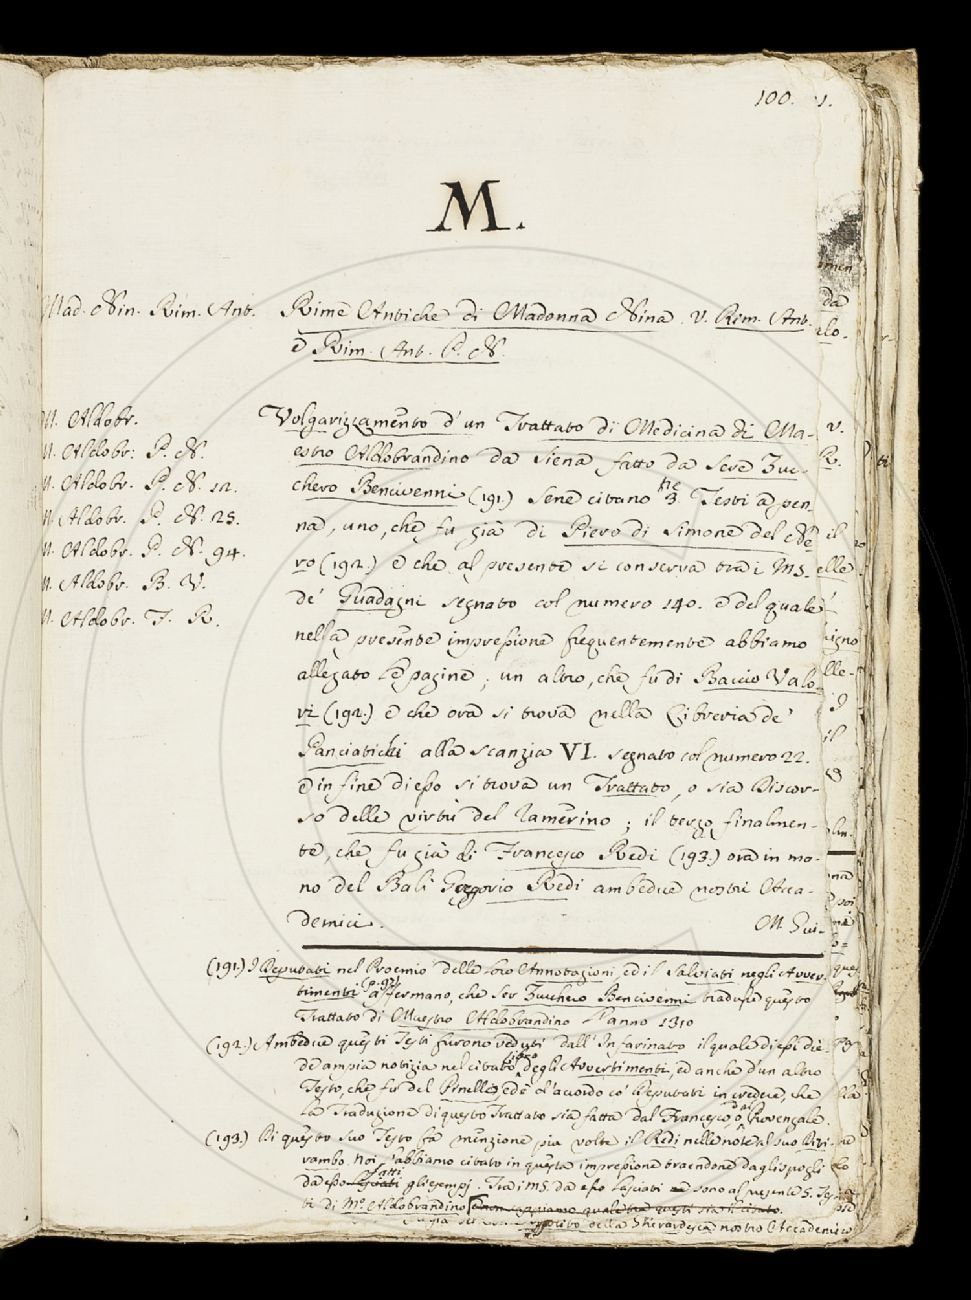 100.
M.
Mad. Nin. Rim. Ant.
Rime Antiche di Madonna Nina. v. Rim. Ant.
e Rim. Ant. P. N.
M. Aldobr.
M. Aldobr. P. N.
M. Aldobr. P. N. 12.
M. Aldobr. P. N. 23.
M. Aldobr. P. N. 94.
M. Aldobr. B. V.
M. Aldobr. F. R.
Volgarizzamento d' un Trattato di Medicina di Ma-
estro Aldobrandino da Siena fatto da Sere Zuc-
chero Bencivenni (191.) Sene citano tre 3. Testi a pen-
na, uno, che fu già di Piero di Simone del Ne-
ro (192.) e che al presente si conserva tra i MS.
de' Guadagni segnato col numero 140. e del quale
nella presente impressione frequentemente abbiamo
allegato le pagine; un altro, che fu di Baccio Valo-
ri (192.) e che ora si trova nella Libreria de'
Panciatichi alla scanzia VI. segnato col numero 22.
e in fine di esso si trova un Trattato, o sia Discor-
so delle virtù del Ramerino; il terzo finalmen-
te, che fu già di Francesco Redi (193.) ora in ma-
no del Balì Gregorio Redi ambedue nostri Acca-
demici.
M. Gui-
(191.) I Deputati nel Proemio delle loro Annotazioni, ed il Salviati negli Avver-
timenti affermano, che Ser Zucchero Bencivenni tradusse questo
Trattato di Maestro Aldobrandino l'anno 1310
(192.) Ambedue questi Testi furono veduti dall' Infarinato il quale di essi die-
de ampia notizia nel citato libro degli Avvertimenti, ed anche d'un altro
Testo, che fu del Pinelli, ed è d'accordo co' Deputati in credere, che
la Traduzione di questo Trattato sia fatta dal Francesco, o dal Provenzale.
(193.) Di questo suo Testo fa menzione più volte il Redi nelle note al suo Diti-
rambo. Noi l'abbiamo citato in questa impressione traendone dagli spogli
da esso fatti gli esempj. Tra i MS. da esso lasciati sono al presente 5. Tes-
ti di M.º Aldobrandino
della Gherardesca nostro Accademico